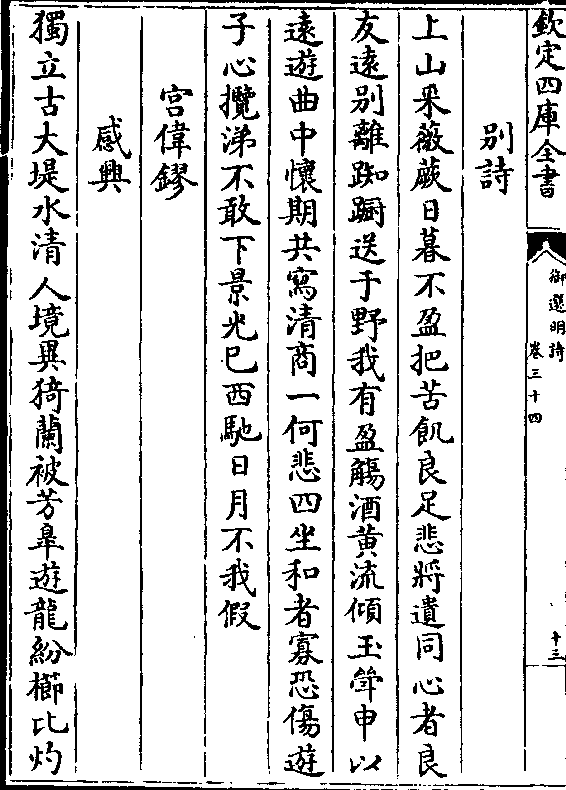 欽定四庫全書
御選明詩
卷三十四
十三
别詩
上山采薇蕨日暮不盈把苦飢良足悲將遺同心者良
友遠别離踟蹰送于野我有盈觴酒黄流傾玉斝申以
遠遊曲中懷期共寫清商一何悲四坐和者寡恐傷遊
子心攬涕不敢下景光已西馳日月不我假
宫偉鏐
感興
獨立古大堤水清人境異猗蘭被芳臯遊龍紛櫛比灼